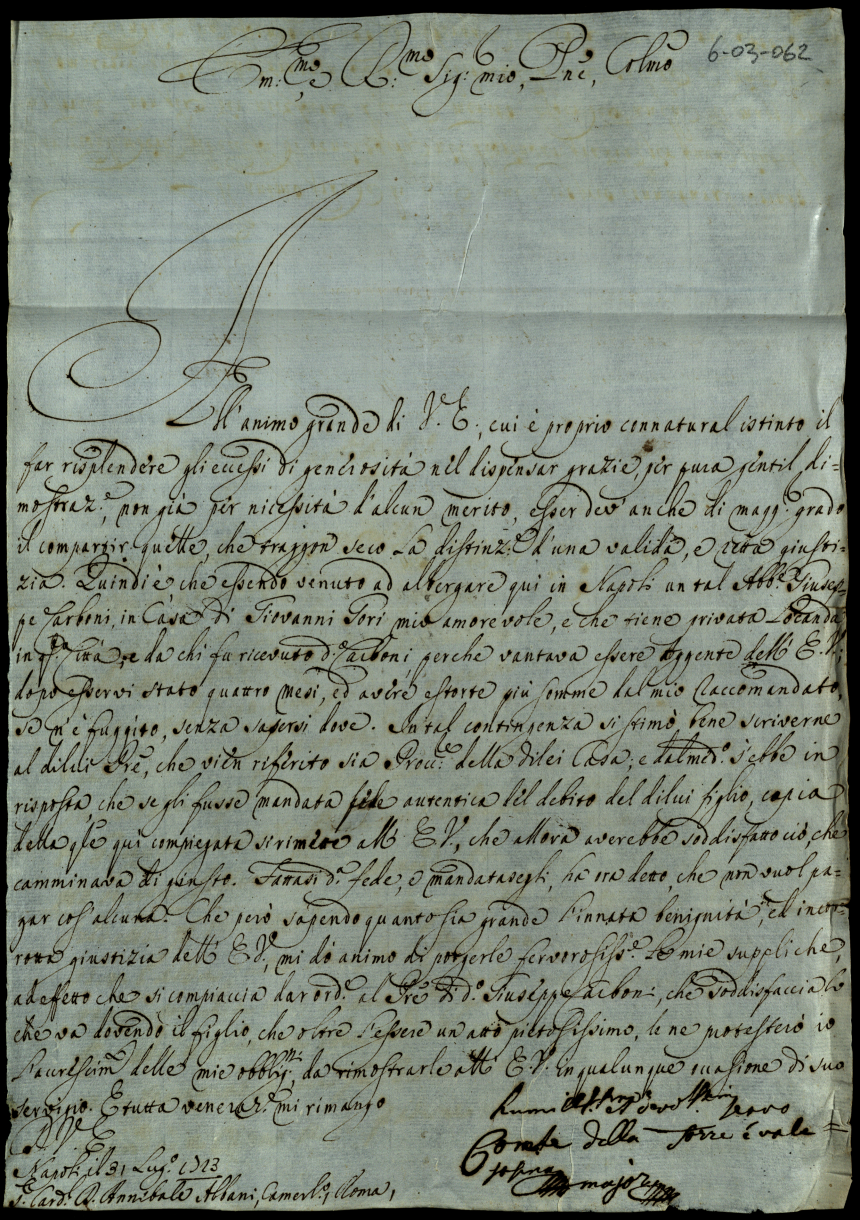 6-03-062
Em:mo, e R:mo Sig: mio, Pne, Colmo
All'animo grande di V. E., cui è proprio connatural istinto il
far risplendere gli eccessi di generosità nel dispensar grazie, per pura gentil di=
mostraz.e, non già per nicessità d'alcun merito, esser dev'anche di magg.r grado
il compartir quelle, che traggon seco la distinz.e d'una valida, e retta giusti=
zia. Quindi è che essendo venuto ad albergare qui in Napoli un tal Abb.e Giusep=
pe Carboni, in Casa di Giovanni Gori mio amorevole, e che tiene privata Locanda
in q.sta Città, e da chi fu ricevuto d.o Carboni perche vantava essere Aggente dell'E.V.;
dopo esservi stato quattro mesi, ed avere estorte più somme dal mio Raccomandato,
se n'è fuggito, senza sapersi dove. In tal contingenza si stimò bene scriverne
al dilui Pre, che vien riferito sia Procu.re della dilei Casa; e dal med.o s'ebbe in
risposta, che se gli fusse mandata fede autentica del debito del dilui figlio, copia
della qle qui compiegata si rimette all'E.V., che allora averebbe soddisfatto ciò, che
camminava di giusto. Fattasi d.a fede, e mandatasegli, ha ora detto, che non vuol pa=
gar cos'alcuna. Che però sapendo quanto sia grande l'innata benignità, ed incor=
rotta giustizia dell'E.V., mi dò animo di porgerle fervorosiss.e le mie suppliche,
ad effetto che si compiaccia dar ord.e al Pre di d.o Giuseppe Carboni, che soddisfaccia lo
che va dovendo il figlio, che oltre l'essere un atto pietosissimo, le ne protesterò io
l'accrescim.o delle mie obblig.ni, da rimostrarle all'E.V. in qualunque occasione di suo
servigio. E tutta veneraz.e mi rimango
D. V. E.
Napoli il 31 Lug.o 1723
S.r Card. D. Annibale Albani, Camerl.o, Roma,
Servo
Conte della Torre e Vale=
sassina
major